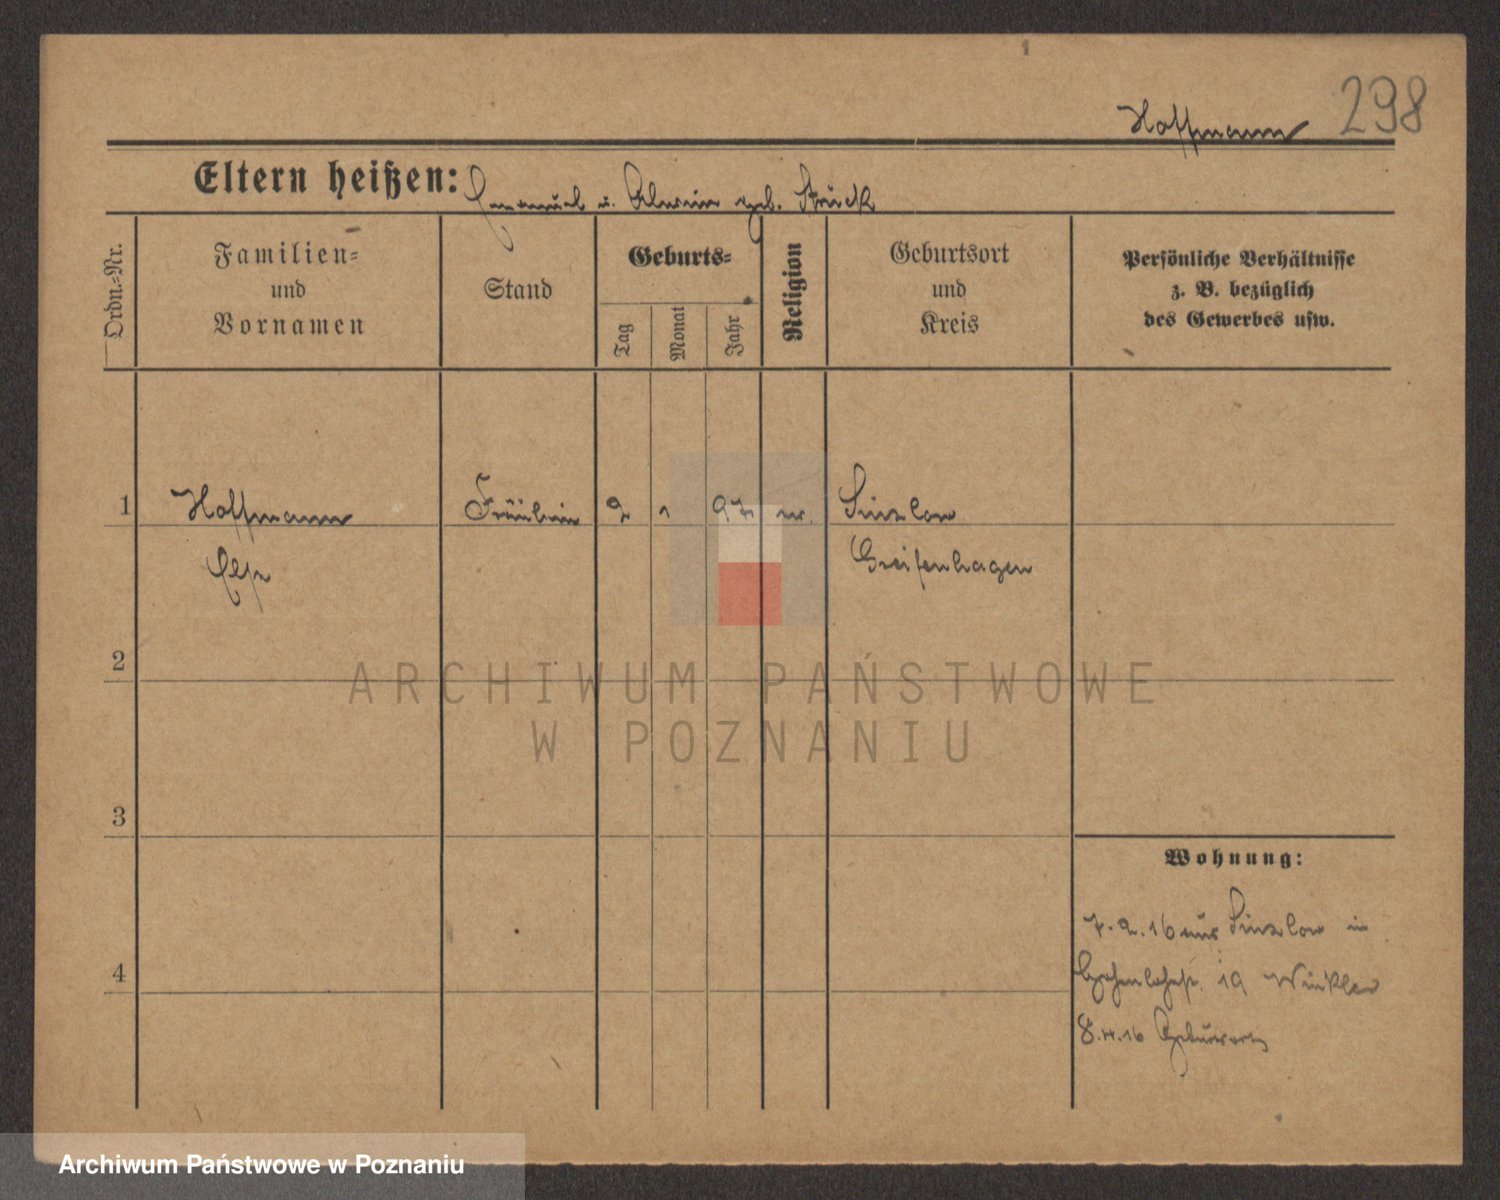 Hoffmann 298
Eltern heißen: Emanuel u. Alwine geb. Strück
Ordn.-Nr.
Familien-
und
Vornamen
Stand
Geburts-
Tag
Monat
Jahr
Religion
Geburtsort
und
Kreis
Persönliche Verhältnisse
z. B. bezüglich
des Gewerbes usw.
1 Hoffmann Fräulein 2 1 97 ev. Sinzlow
Else Greifenhagen
2
ARCHIWUM PAŃSTWOWE
W POZNANIU
3
Wohnung:
7.2.16 aus Sinzlow in
19 Winkler
4
8.4.16
Archiwum Państwowe w Poznaniu